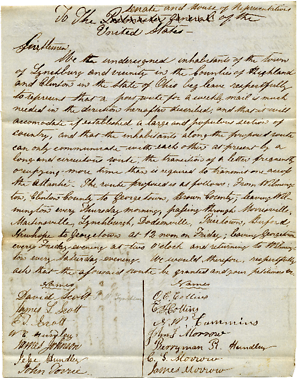 Senate and House of Representatives
To The Postmaster General of the
United States—
Gentlemen:
We the undersigned inhabitants of the town
of Lynchburg and vicinity in the Counties of Highland
and Clinton in the State of Ohio beg leave respectfully
to represent that a post route for a weekly mail is much
needed in the direction hereafter described, and that it would
accomodate if established a large and populous section of
country, and that the inhabitants along the proposed route
can only communicate with each other at present by a
long and circuitous route, the transition of a letter frequently
occupying more time than is required to transmit one across
the Atlantic. The route proposed is as follows: From Wilming-
ton, Clinton County to Georgetown, Brown County, leaving Wil-
mington every Thursday morning, passing through
Martinsville, Lynchburgh, Dodsonville,
Newhope to Georgetown at 12 noon Friday, leaving Georgetown
every Friday evening at two o'clock and returning to Wilming-
ton every Saturday evening. We would therefore, respectfully
ask that the aforesaid route be granted and your petitioners &c.
Names
David Scott
James L. Scott
T. J. Scott
James Johnson
Hundley
John
Names
O. C. Collins
E. Colling
Cummins
John Morrow
Merryman R. Hundley
C. S. Morrow
James Morrow